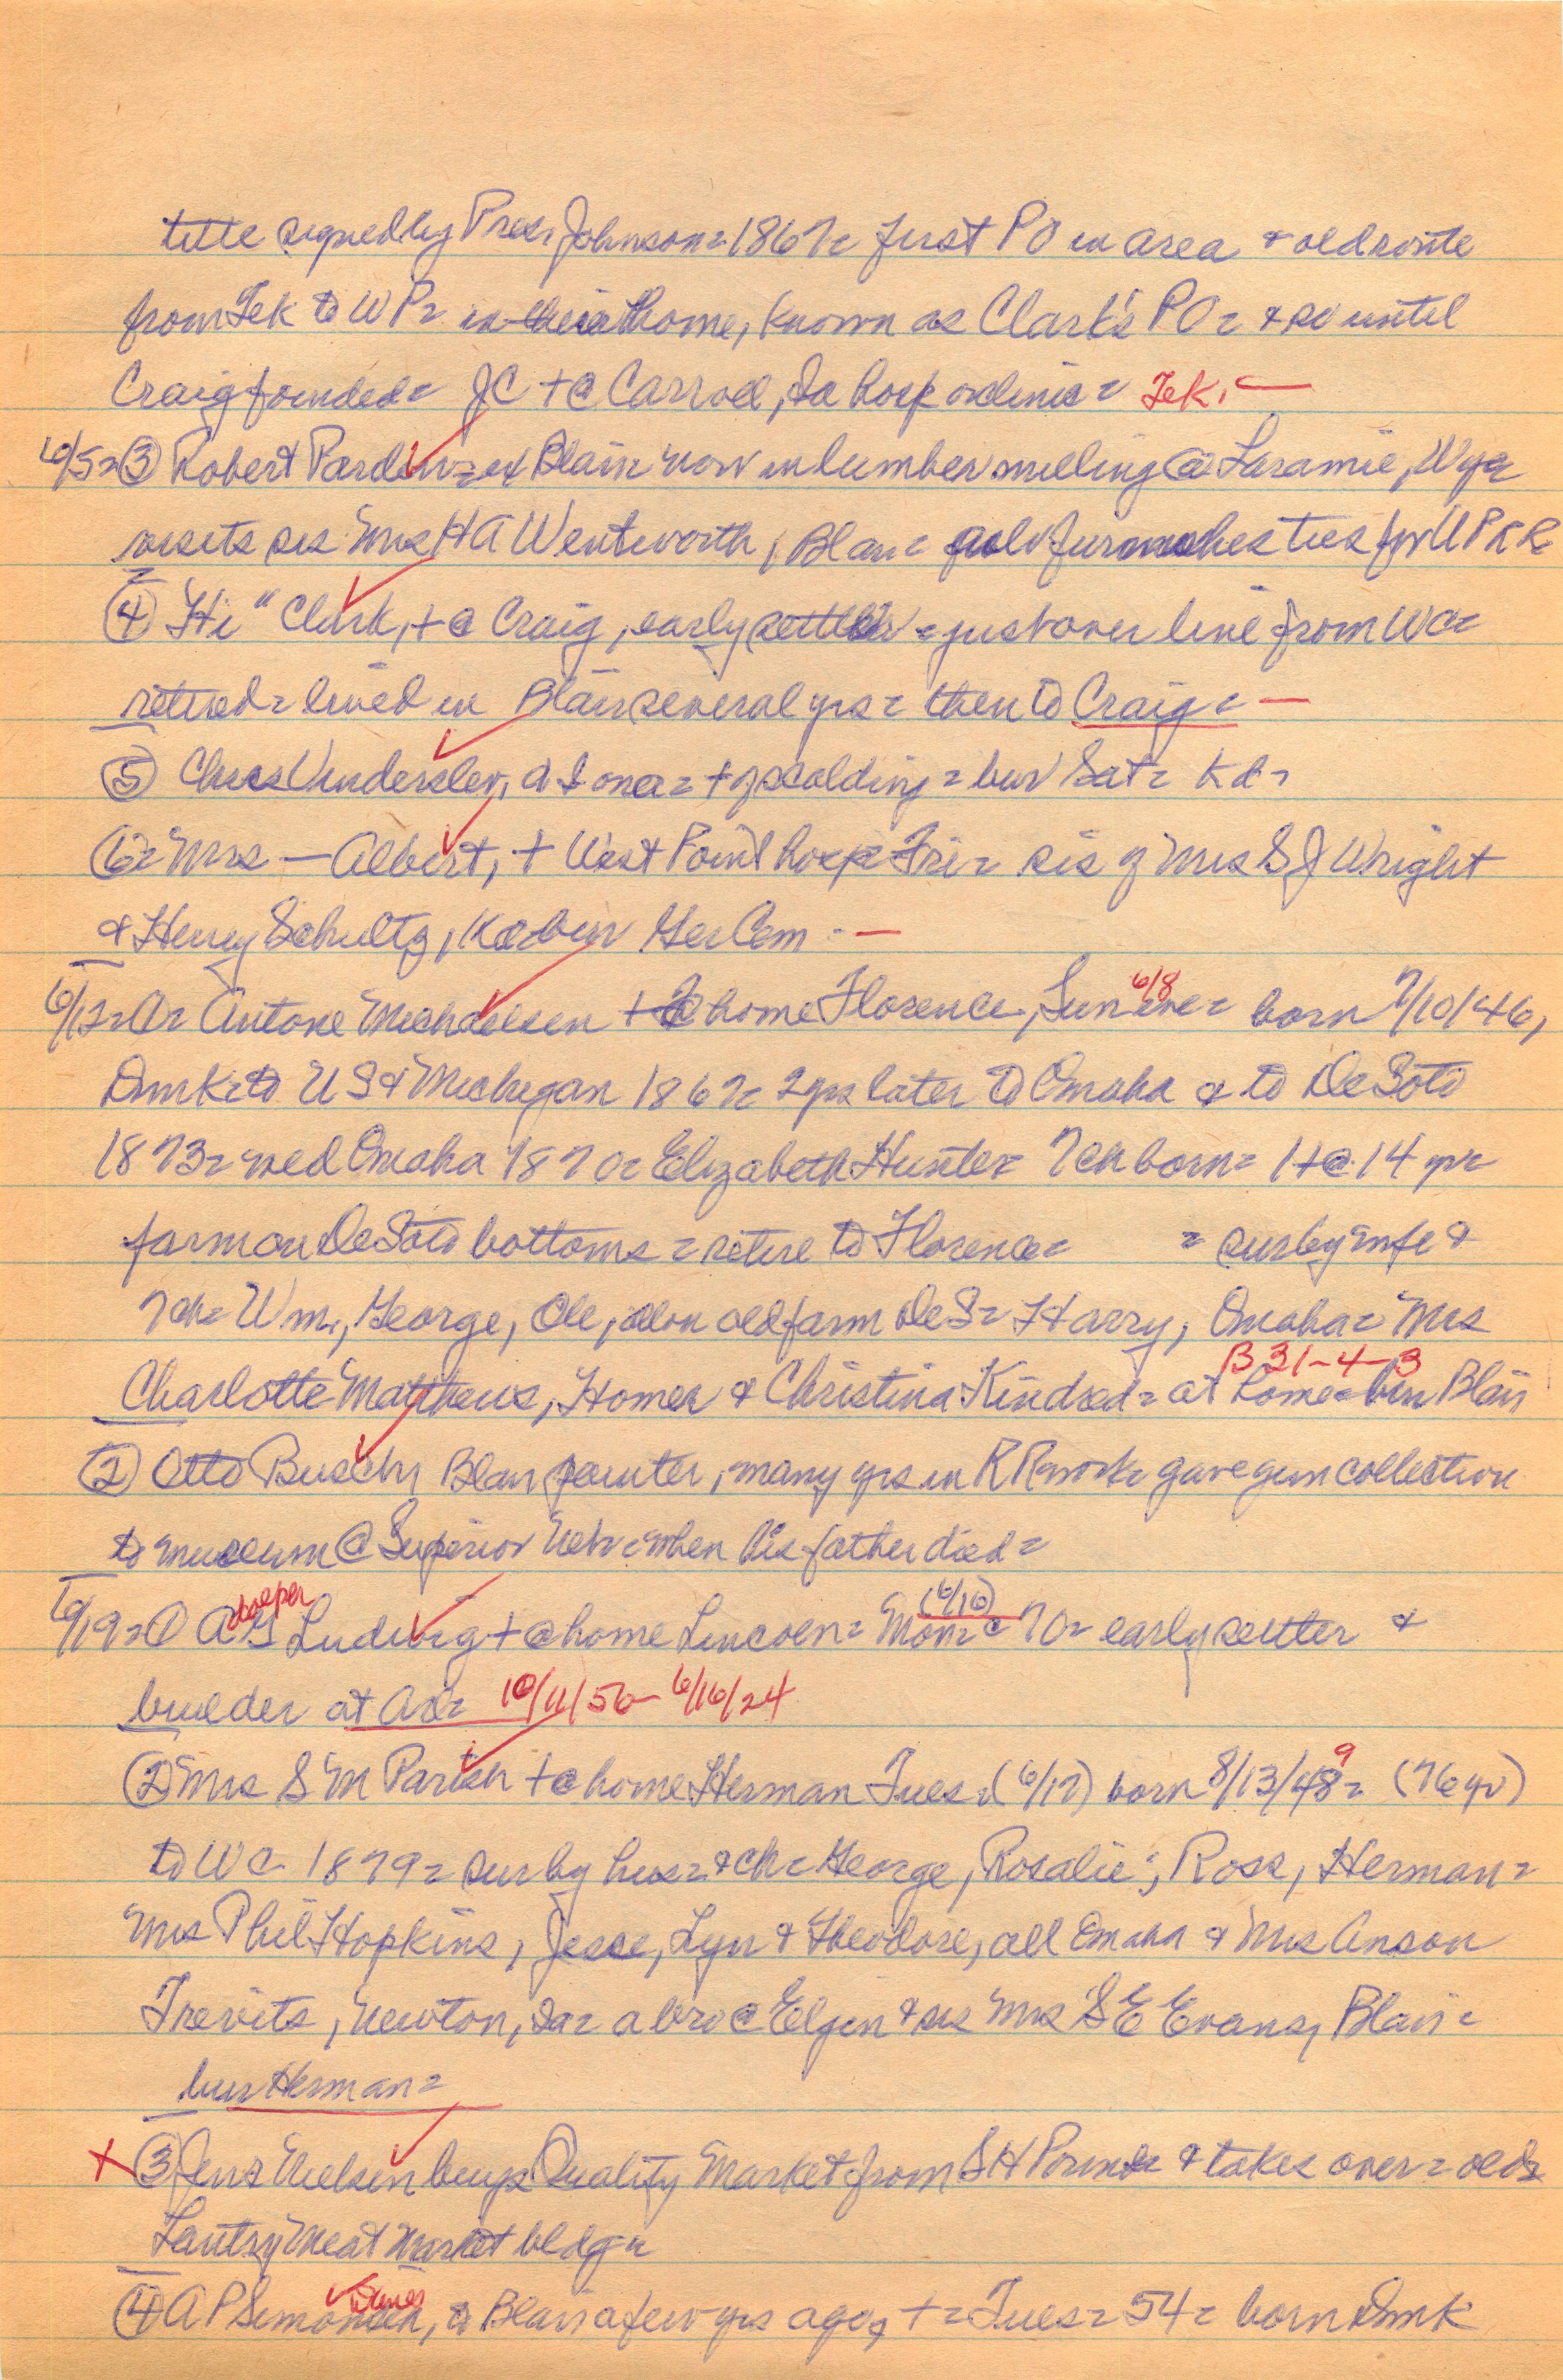 title signed by Pres. Johnson = 1867 = first PO in area & old route
from Tek to WP = in their home, known as Clark's PO = & so until
Craig founded = JC + @ Carroll, Ia hosp or clinic = Tek. —
6/5 = ③ Robert Pardun = ex Blair now in lumber milling @ Laramie, Wyo =
visits sis Mrs H A Wentworth, Blair = furnishes ties for UPRR
④ "Hi" Clark, + @ Craig, early settler = just over line from WC =
retired = lived in Blair several yrs = then to Craig = —
⑤ Chris Vinderslev, = + of scalding = bur Sat = Kd =
⑥ = Mrs — Albert, + West Point hosp Fri = sis of Mrs S J Wright
& Henry Schultz, K = bur Ger Cem = —
6/12 = ① = Antone Michaelsen + @ home Florence, Sun 6/8 eve = born 7/10/46,
Dmk = to US & Michegan 1867 = 2 yrs later to Omaha & to DeSoto
1873 = wed Omaha 1870 = Elizabeth Hunter = 7 ch born = 1 + @ 14 yr =
farm on DeSoto bottoms = retire to Florence = = sur by wife &
7 ch = Wm., George, Ole, all on old farm DeS = Harry, Omaha = Mrs
B 31-4-3
Charlotte Matthews, Homer & Christina Kindred = at home = bur Blair
② Otto Busch, Blair painter, many yrs in RR work = gave gun collection
to museum @ Superior Nebr = when his father died =
6/19 = ① A G Ludwig + @ home Lincoln = Mon = (6/16) = 70 = early settler &
builder at = 10/11/56 - 6/16/24
② Mrs S M Parish + @ home Herman Tues = (6/17) born 8/13/48 9 = (76 yr)
to WC 1879 = sur by hus = & ch = George, Rosalie, Ross, Herman =
Mrs Phil Hopkins, Jesse, Lyn & Theodore, all Omaha & Mrs Anson
Trevits, Newton, Ia = a bro @ Elgin & sis Mrs S E Evans, Blair =
bur Herman =
X ③ Jens Nielsen buys Quality Market from S H & takes over = old
Lantzy Meat Market bldg =
④ A P Simonsen, to Blair a few yrs ago, + = Tues = 54 = born Dmk